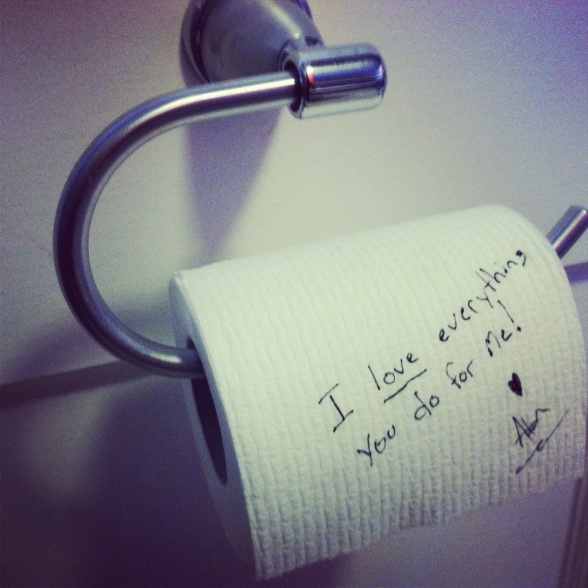 I love everything
you do for me!
♥
Alan